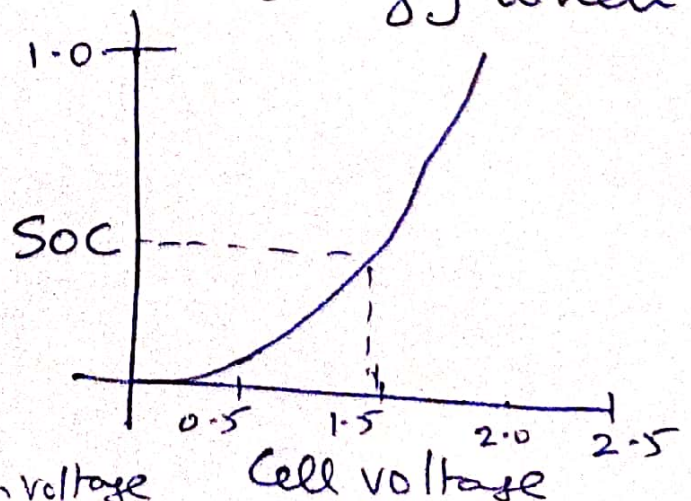 when
1.0
SOC
0.5 1.5 2.0 2.5
voltage Cell voltage